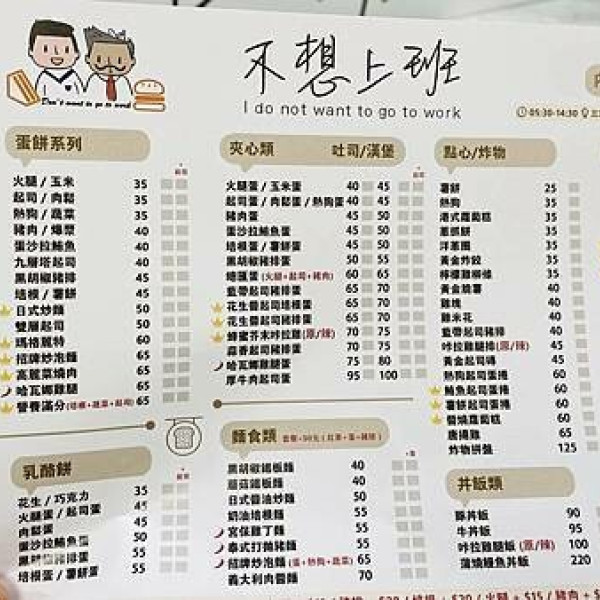 不想上班
I do not want to go to work
Don't want to go to work
05:30-14:30
蛋餅系列
火腿 / 玉米 35
起司 / 肉鬆 35
熱狗 / 蔬菜 35
豬肉 / 爆漿 40
蛋沙拉鮪魚 40
九層塔起司 40
黑胡椒豬排 45
培根 / 薯餅 45
日式炒麵 50
雙層起司 50
瑪格麗特 60
招牌炒泡麵 65
高麗菜燒肉 65
哈瓦娜雞腿 65
營養滿分(培根+蔬菜+起司) 65
乳酪餅
花生 / 巧克力 35
火腿蛋 / 起司蛋 45
肉鬆蛋 45
蛋沙拉鮪魚蛋 50
黑胡椒豬排蛋 55
培根蛋 / 薯餅蛋 55
夾心類 吐司/漢堡
火腿蛋 / 玉米蛋 40 45
起司蛋 / 肉鬆蛋 / 熱狗蛋 40 45
豬肉蛋 45 50
蛋沙拉鮪魚蛋 45 50
培根蛋 / 薯餅蛋 45 50
黑胡椒豬排蛋 50 55
培匯蛋 (火腿+起司+豬肉) 60 65
藍帶起司豬排蛋 65 70
花生醬起司培根蛋 65 70
花生醬起司豬排蛋 65 70
蜂蜜芥末咔拉雞(原/辣) 70 75
蒜香起司豬排蛋 70 75
哈瓦娜雞腿蛋 75 80
厚牛肉起司蛋 95 100
麵食類 套餐+50元 (紅茶+蛋+豬排)
黑胡椒鐵板麵 40
蘑菇鐵板麵 40
日式醬油炒麵 50
奶油培根麵 55
宮保雞丁麵 55
泰式打拋豬麵 55
招牌炒泡麵 (蛋+熱狗+蔬菜) 65
義大利肉醬麵 70
點心/炸物
薯餅 25
熱狗 35
港式蘿蔔糕 35
蔥抓餅 35
洋蔥圈 35
黃金炸餃 35
檸檬雞柳條 35
黃金脆薯 40
雞塊 40
雞米花 40
藍帶起司豬排 40
咔拉雞腿排(原/辣) 45
黃金起司磚 45
熱狗起司蛋捲 60
鮪魚起司蛋捲 60
薯餅起司蛋捲 60
醬燒蘿蔔糕 60
唐揚雞 65
炸物拼盤 125
丼飯類
豚丼飯 90
牛丼飯 95
咔拉雞腿飯 (原/辣) 100
蒲燒鰻魚丼飯 220